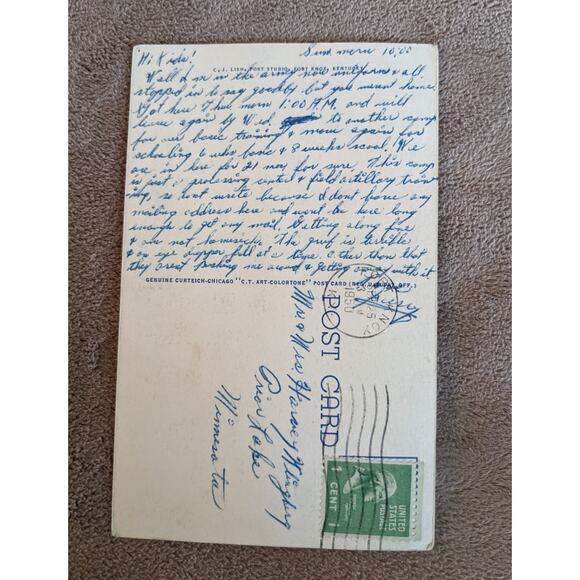 Hi Kids! Sun morn 10:00
C. J. LISH, POST STUDIO, FORT KNOX, KENTUCKY
Well I'm in the army now uniform & all.
stopped in to say goodby but you wernt home.
Got here Thur. morn 1:00 A.M. and will
leave again by Wed. to another camp
for our basic training & move again for
schooling 6 wks basic & 8 weeks scool. We
are in here for 21 mos for sure. This camp
is just a processing center & field artillary train
ing, so dont write because I dont have any
mailing address here and wont be here long
enough to get any mail. Getting along fine
& am not homesick. The grub is terrible
& an eye dropper full at a time. Other than that
they arent pushing me around & getting away with it
GENUINE CURTEICH-CHICAGO "C.T. ART-COLORTONE" POST CARD (REG. U.S. PAT. OFF.)
FORT KNOX
25
1950
POST CARD
Mr & Mrs. Harvey
Prior Lake
Minnesota
UNITED STATES
POSTAGE
1 CENT 1